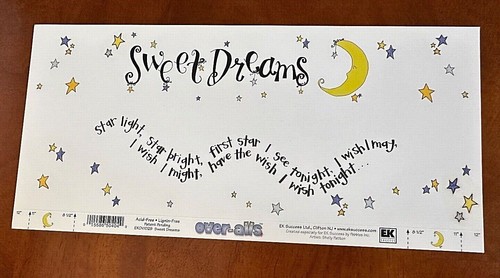 Sweet Dreams
Star light, Star bright, first star I see tonight, I wish I may,
I wish I might, have the wish I wish tonight...
12" 11" 8-1/2" Acid-Free • Lignin-Free
Patent Pending
Sweet Dreams
over-alls
EK Success Ltd., Clifton NJ • www.eksuccess.com
EK
SUCCESS
8-1/2" 11" 12"